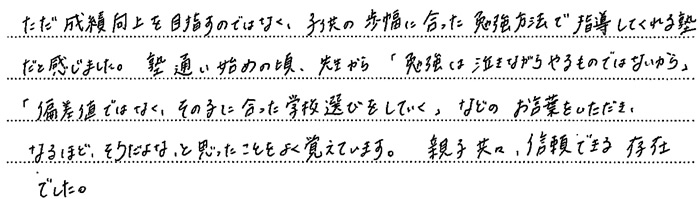 ただ成績向上を目指すのではなく、子供の歩幅に合った勉強方法で指導してくれる塾
だと感じました。塾通い始めの頃、先生から「勉強は泣きながらやるものではないから」
「偏差値ではなく、その子に合った学校選びをしていく」などのお言葉をいただき、
なるほど、そうだよな、と思ったことをよく覚えています。親子共々、信頼できる存在
でした。